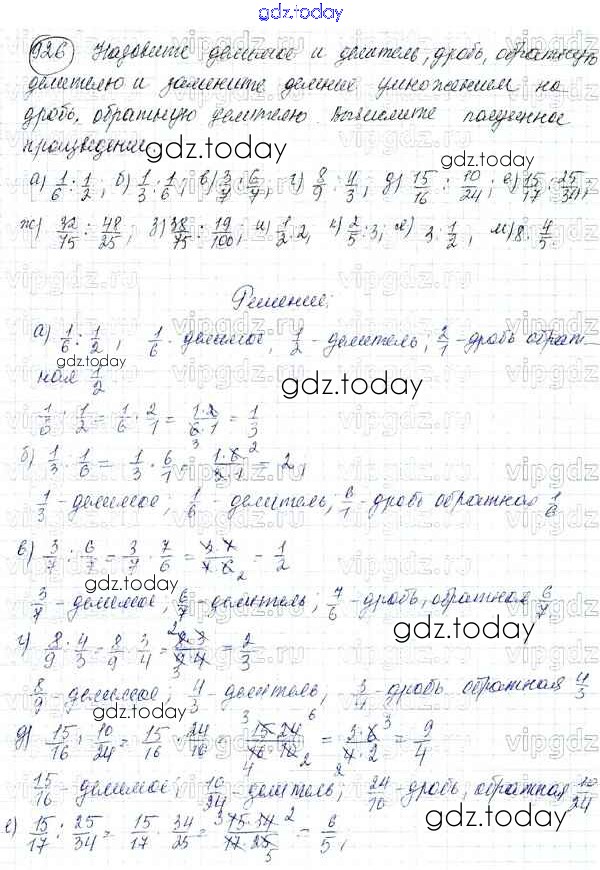 gdz.today
926 Назовите делимое и делитель, дробь, обратную
делителю и замените деление умножением на
дробь, обратную делителю. Вычислите полученное
произведение.
gdz.today
а) 1/6 : 1/2, б) 1/3 : 1/6, в) 3/7 : 6/7, г) 8/9 : 4/3, д) 15/16 : 10/24; е) 15/17 : 25/34;
ж) 32/75 : 48/25, з) 38/75 : 19/100; и) 1/2 : 2, к) 2/5 : 3; л) 3 : 1/2, м) 8 : 4/5.
Решение:
а) 1/6 : 1/2, 1/6 - делимое, 1/2 - делитель, 2/1 - дробь обрат-
ная 1/2
gdz.today
1/6 : 1/2 = 1/6 · 2/1 = 1·2/6·1 = 1/3
б) 1/3 : 1/6 = 1/3 · 6/1 = 1·6/3·1 = 2,
1/3 - делимое; 1/6 - делитель, 6/1 - дробь обратная 1/6
в) 3/7 : 6/7 = 3/7 · 7/6 = 3·7/7·6 = 1/2
gdz.today
3/7 - делимое; 6/7 - делитель; 7/6 - дробь, обратная 6/7
г) 8/9 : 4/3 = 8/9 · 3/4 = 8·3/9·4 = 2/3
gdz.today
8/9 - делимое; 4/3 - делитель, 3/4 - дробь обратная 4/3
gdz.today
д) 15/16 : 10/24 = 15/16 · 24/10 = 15·24/16·10 = 3·6/4·2 = 9/4
15/16 - делимое; 10/24 - делитель; 24/10 - дробь, обратная 10/24
е) 15/17 : 25/34 = 15/17 · 34/25 = 15·34/17·25 = 6/5;
gdz.today